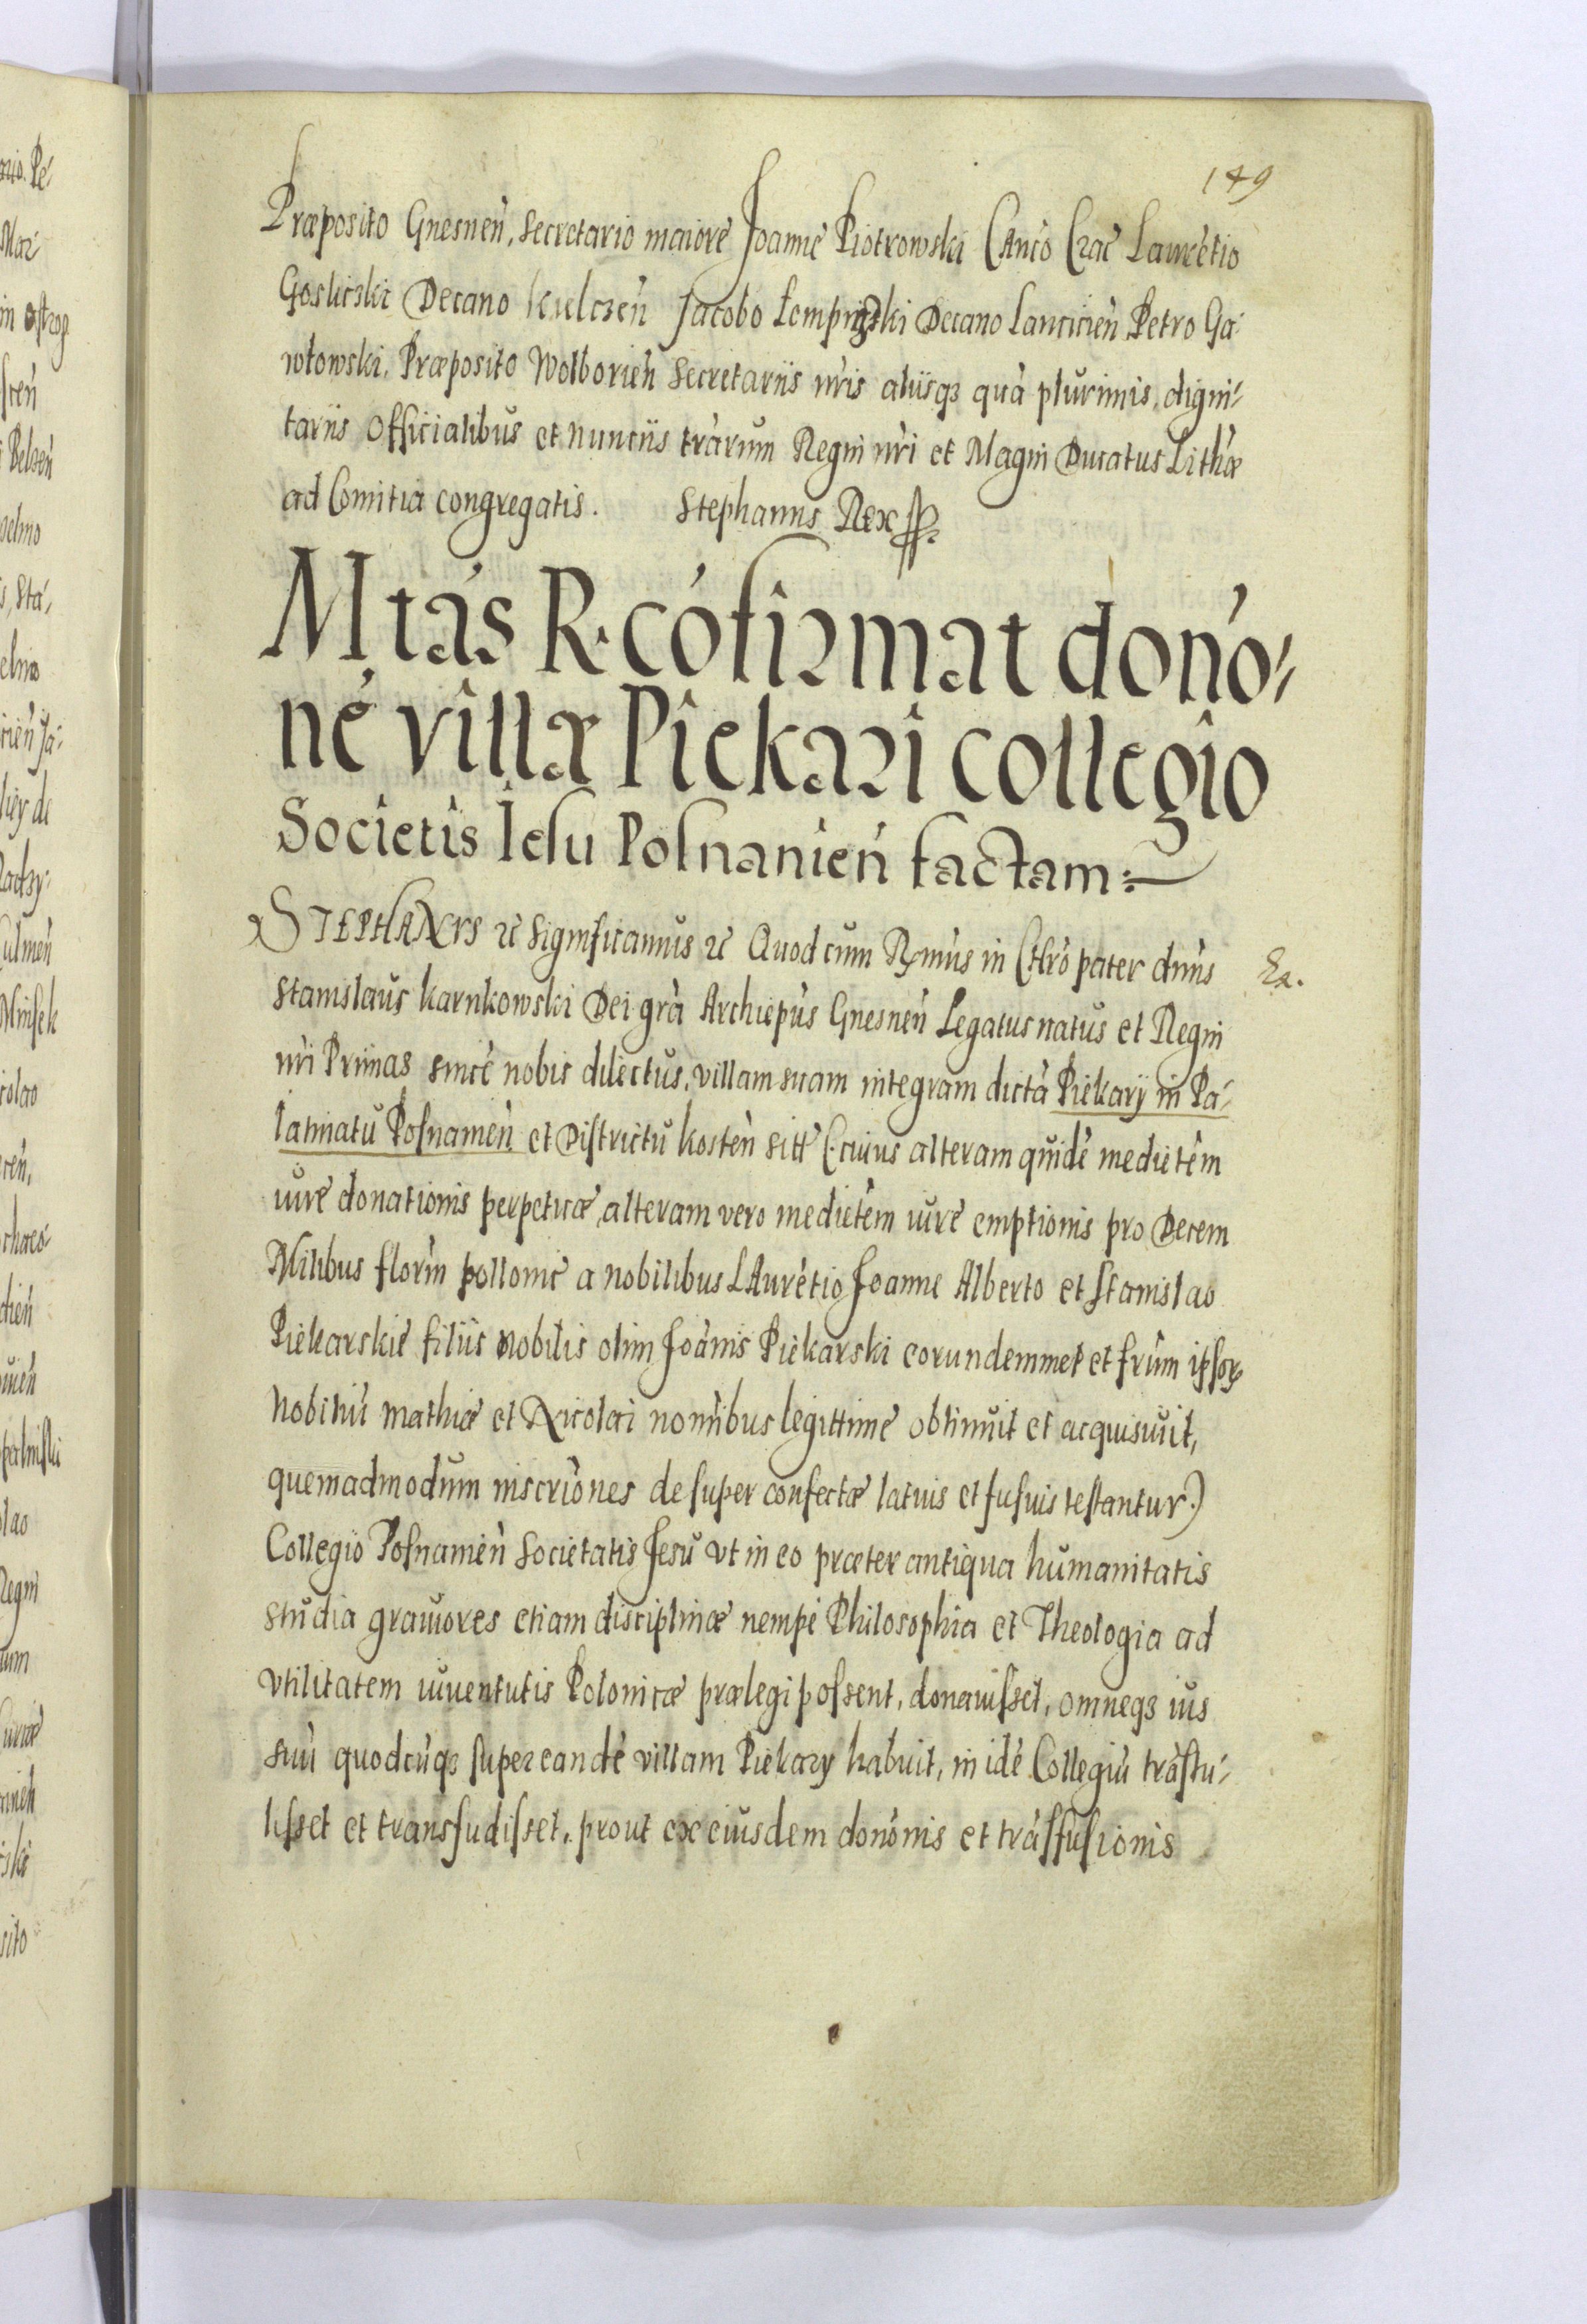 149
Præposito Gnesneń, Secretario maiore Joanne Piotrowski Canco Crac Lauretio
Goslicski Decano kielczeń Jacobo Łempicski Decano Lancicień Petro Ga-
włowski, Præposito Wolborień Secretariis nris aliisq3 quà plurimis, digni-
tariis Officialibus et nunciis tràrum Regni nri et Magni Ducatus Lithæ
ad Comitia congregatis. Stephanus Rex
Mtas R. cófirmat donó-
né villæ Piekari collegio
Societis Iesu Posnanień factam:
STEPHANVS &c Significamus &c Quod cum Rmus in Chro pater dnus
Stanislaus karnkowski Dei grà Archiepus Gnesneń Legatus natus et Regni
nri Primas sincé nobis dilectus, villam suam integram dictà Piekary in Pa-
latinatu Posnanień et Districtu kosteń sitt (cuius alteram quidé medietèm
iure donationis perpetuæ, alteram vero medietèm iure emptionis pro Decem
Milibus florin pollonic a nobilibus LAuretio Joanne Alberto et Stanislao
Piekarskie filiis nobilis olim Joànis Piekarski eorundemmet et frum ipsor
Nobiliù mathiæ et Nicolai nomibus legittime obtinuit et acquisiuit,
quemadmodum inscriònes desuper confectæ latius et fusius testantur.)
Collegio Posnanień Societatis Jesu vt in eo præter antiqua humanitatis
studia grauiores etiam disciplinæ nempe Philosophia et Theologia ad
vtilitatem iuuentutis Polonicæ prælegi possent, donauisset, omneq3 ius
suù quodcùq3 super eandé villam Piekary habuit, in idé Collegiù tràstu-
lisset et transfudisset, prout ex eiusdem donónis et tràsfusionis